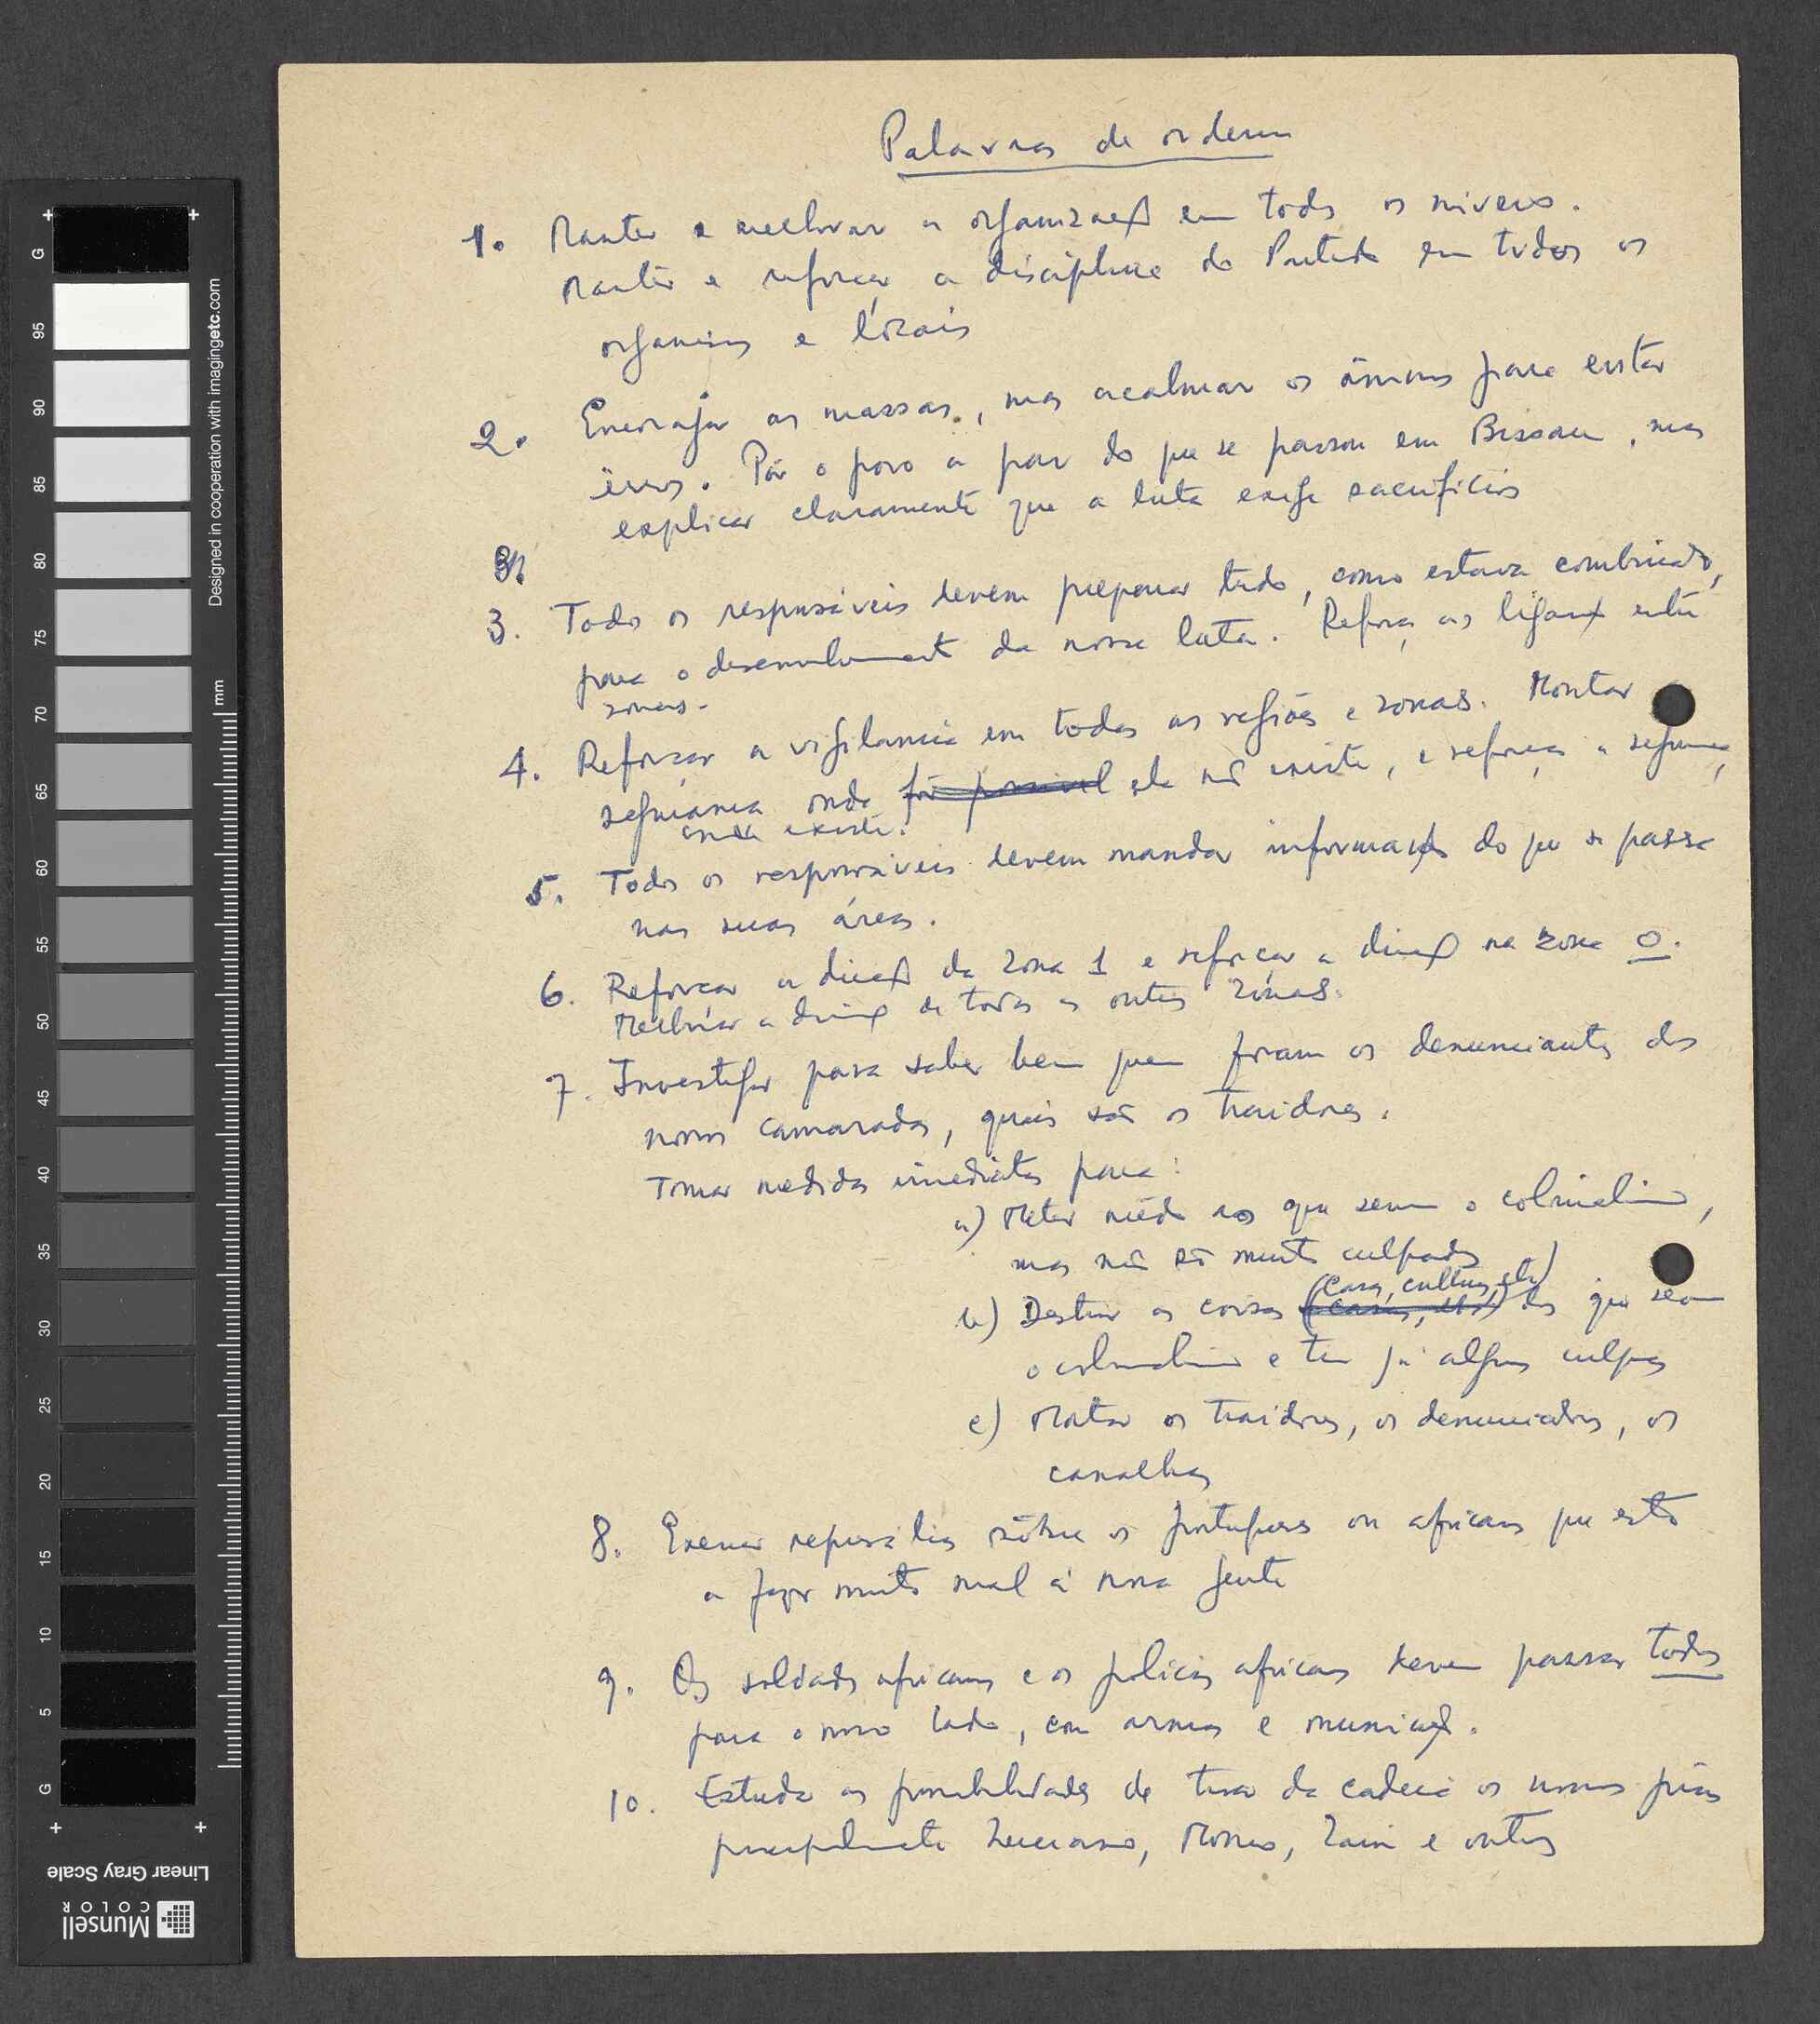 Palavras de ordem
1. Manter e melhorar a organização em todos os níveis.
Manter e reforçar a disciplina do Partido em todos os
organismos e locais
2. Encorajar as massas, mas acalmar os ânimos para evitar
êrros. Pôr o povo a par do que se passou em Bissau, mas
explicar claramente que a luta exige sacrifícios
3. Todos os responsáveis devem preparar tudo, como estava combinado,
para o desenvolvimento da nossa luta. Reforçar as ligações entre
zonas.
4. Reforçar a vigilância em todas as regiões e zonas. Montar
segurança onde fôr possível ela não existe, e reforçar a segurança
onde existe.
5. Todos os responsáveis devem mandar informações do que se passa
nas suas áreas.
6. Reforçar a direcção da zona 1 e reforçar a direcção na zona 0.
Melhorar a direcção de todas as outras zonas.
7. Investigar para saber bem quem foram os denunciantes dos
nossos camaradas, quais são os traidores.
Tomar medidas imediatas para:
a) Meter mêdo aos que servem o colonialismo,
mas não são muito culpados
(casas, culturas, etc)
b) Destruir as coisas (casas, etc) dos que servem
o colonialismo e têm já algumas culpas
c) Matar os traidores, os denunciadores, os
canalhas
8. Exercer represálias sôbre os portugueses ou africanos que estão
a fazer muito mal à nossa gente
9. Os soldados africanos e os polícias africanos devem passar todos
para o nosso lado, com armas e munições.
10. Estudar as possibilidades de tirar da cadeia os nossos presos
principalmente Momo, Zain e outros